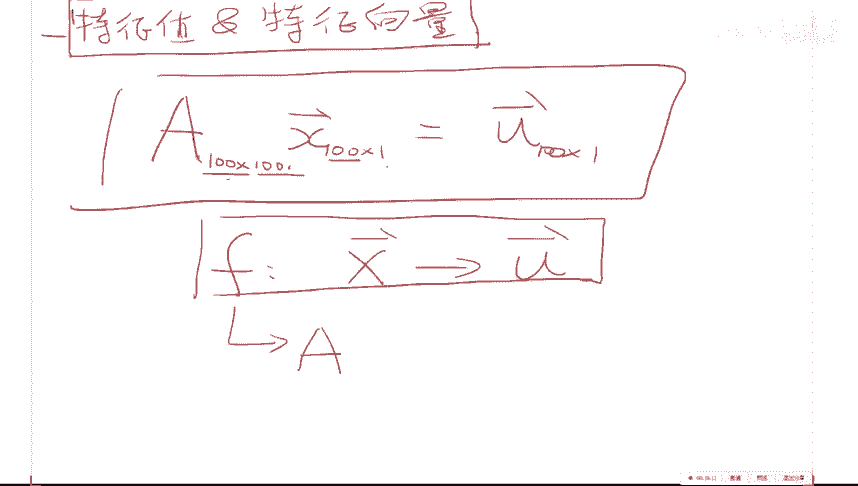 特征值 & 特征向量
A₁₀₀ₓ₁₀₀ x⃗₁₀₀ₓ₁ = u⃗₁₀₀ₓ₁
f: x⃗ → u⃗
↳ A